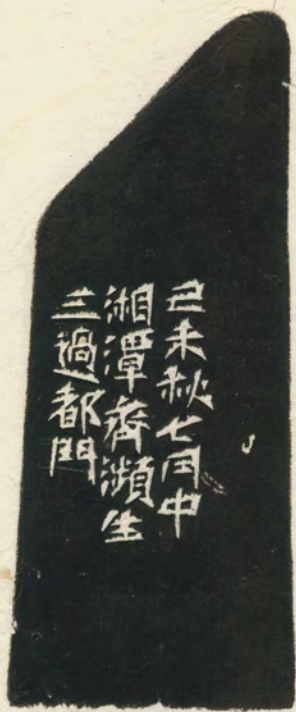 己未秋七月中
湘潭齊瀕生
三過都門